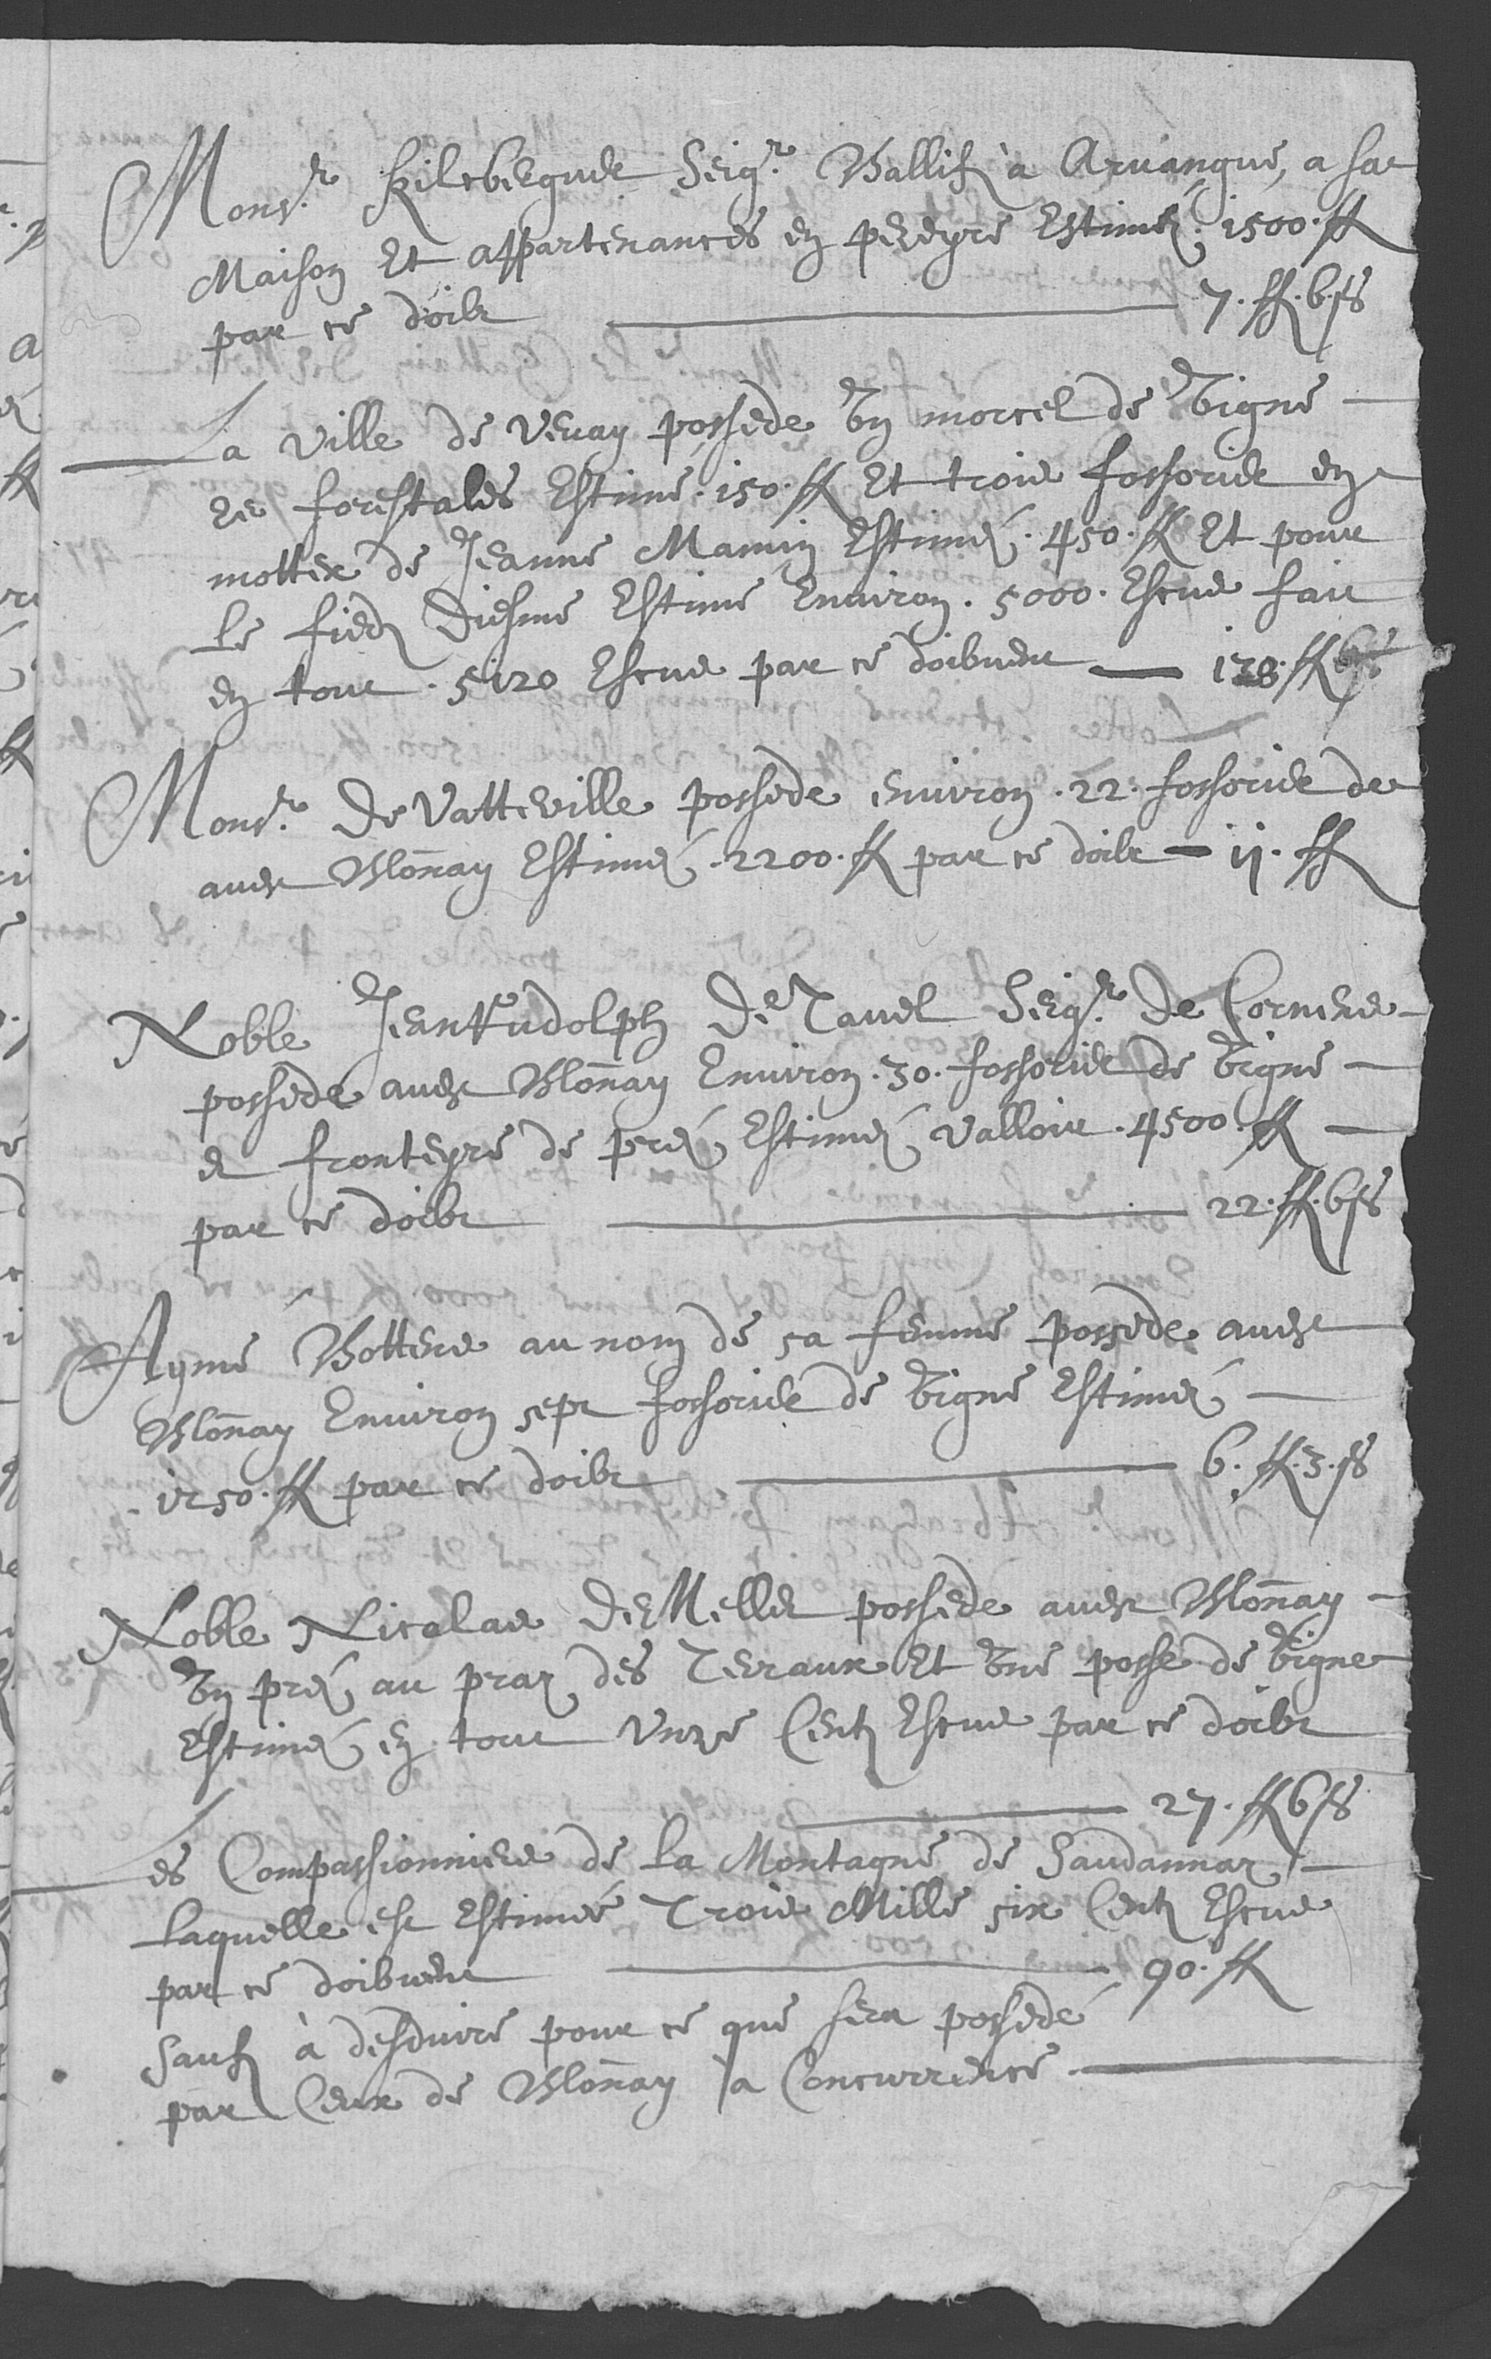 Mons.r Kilcberguer Seig.r Ballif à Arvangue, a sa
Maison Et appartenances en pereyre Estimé. 1500. ff
par ce doibt 7. ff. 6 ss
La ville de Vevay possede Un morcel de Vigne
Es forestales Estimé. 150. ff Et trois fossoriers en
mottex de Jeanne Mamin Estimés. 450. ff Et pour
Le fied Diesme Estimé Environ. 5000. Escus fait
en tout. 5120 Escus par ce doibvent 128. ff
Mons.r De Vatteville possede environ. 22. fossoriers de
avers Blonay Estimés. 2200. ff par ce doibt 11. ff
Noble Jean Rudolph De Tavel Seig.r De Correvon
possede avers Blonay Environ. 30. fossoriers de Vigne
et fronteyre de prés Estimés Valloir. 4500. ff
par ce doibt 22. ff. 6 ss
Aymé Bottens au nom de sa femme possede avers
Blonay Environ sept fossoriers de Vigne Estimés
1250. ff par ce doibt 6. ff. 3. ss
Noble Nicolas De Mellet possede avers Blonay
Un pré, au praz des Teraux Et Une posse de Vigne
Estimés en tout Unze Centz Escus par ce doibt
27. ff 6 ss
Les Compassionniers de La Montagne de Saudannaz
Laquelle est Estimée Trois Mille six Centz Escus
par ce doibvent 90. ff
Sauf à desduire pour ce que sera possedé
par Ceux de Blonay a Concurrence